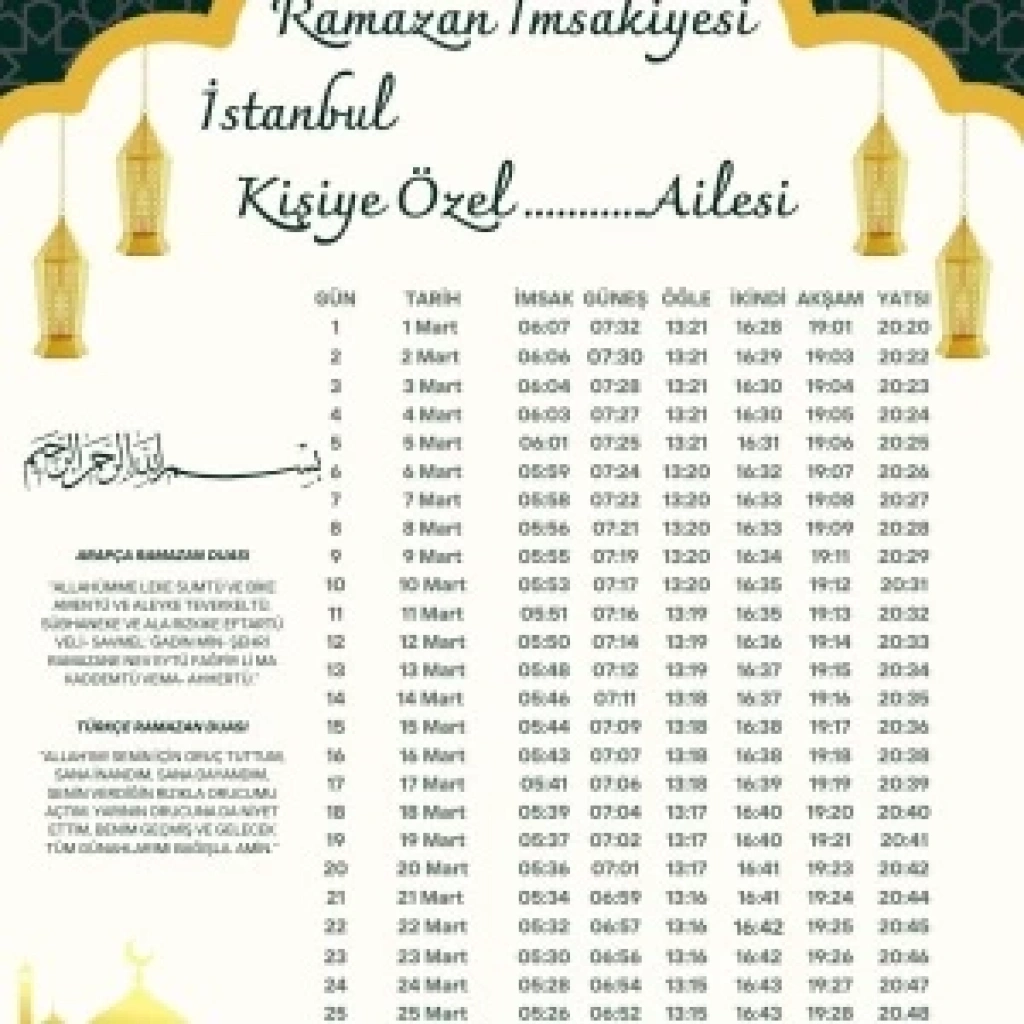 Ramazan İmsakiyesi
İstanbul
Kişiye Özel ...........Ailesi
GÜN TARİH İMSAK GÜNEŞ ÖĞLE İKİNDİ AKŞAM YATSI
1 1 Mart 06:07 07:32 13:21 16:28 19:01 20:20
2 2 Mart 06:06 07:30 13:21 16:29 19:03 20:22
3 3 Mart 06:04 07:28 13:21 16:30 19:04 20:23
4 4 Mart 06:03 07:27 13:21 16:30 19:05 20:24
5 5 Mart 06:01 07:25 13:21 16:31 19:06 20:25
6 6 Mart 05:59 07:24 13:20 16:32 19:07 20:26
7 7 Mart 05:58 07:22 13:20 16:33 19:08 20:27
8 8 Mart 05:56 07:21 13:20 16:33 19:09 20:28
9 9 Mart 05:55 07:19 13:20 16:34 19:11 20:29
10 10 Mart 05:53 07:17 13:20 16:35 19:12 20:31
11 11 Mart 05:51 07:16 13:19 16:35 19:13 20:32
12 12 Mart 05:50 07:14 13:19 16:36 19:14 20:33
13 13 Mart 05:48 07:12 13:19 16:37 19:15 20:34
14 14 Mart 05:46 07:11 13:18 16:37 19:16 20:35
15 15 Mart 05:44 07:09 13:18 16:38 19:17 20:36
16 16 Mart 05:43 07:07 13:18 16:38 19:18 20:38
17 17 Mart 05:41 07:06 13:18 16:39 19:19 20:39
18 18 Mart 05:39 07:04 13:17 16:40 19:20 20:40
19 19 Mart 05:37 07:02 13:17 16:40 19:21 20:41
20 20 Mart 05:36 07:01 13:17 16:41 19:23 20:42
21 21 Mart 05:34 06:59 13:16 16:41 19:24 20:44
22 22 Mart 05:32 06:57 13:16 16:42 19:25 20:45
23 23 Mart 05:30 06:56 13:16 16:42 19:26 20:46
24 24 Mart 05:28 06:54 13:15 16:43 19:27 20:47
25 25 Mart 05:26 06:52 13:15 16:43 19:28 20:48
بسم الله الرحمن الرحيم
ARAPÇA RAMAZAN DUASI
"ALLAHÜMME LEKE SUMTÜ VE BİKE
AMENTÜ VE ALEYKE TEVEKKELTÜ.
SÜBHANEKE VE ALA RIZKIKE EFTARTÜ
VELİ- SAVMEL' GADİN MİN- ŞEHRİ
RAMAZANE NEVEYTÜ FAĞFİR Lİ MA
KADDEMTÜ VEMA- AHHERTÜ."
TÜRKÇE RAMAZAN DUASI
"ALLAH'IM! SENİN İÇİN ORUÇ TUTTUM,
SANA İNANDIM, SANA DAYANDIM,
SENİN VERDİĞİN RIZIKLA ORUCUMU
AÇTIM. YARININ ORUCUNA DA NİYET
ETTİM, BENİM GEÇMİŞ VE GELECEK
TÜM GÜNAHLARIMI BAĞIŞLA. AMİN."